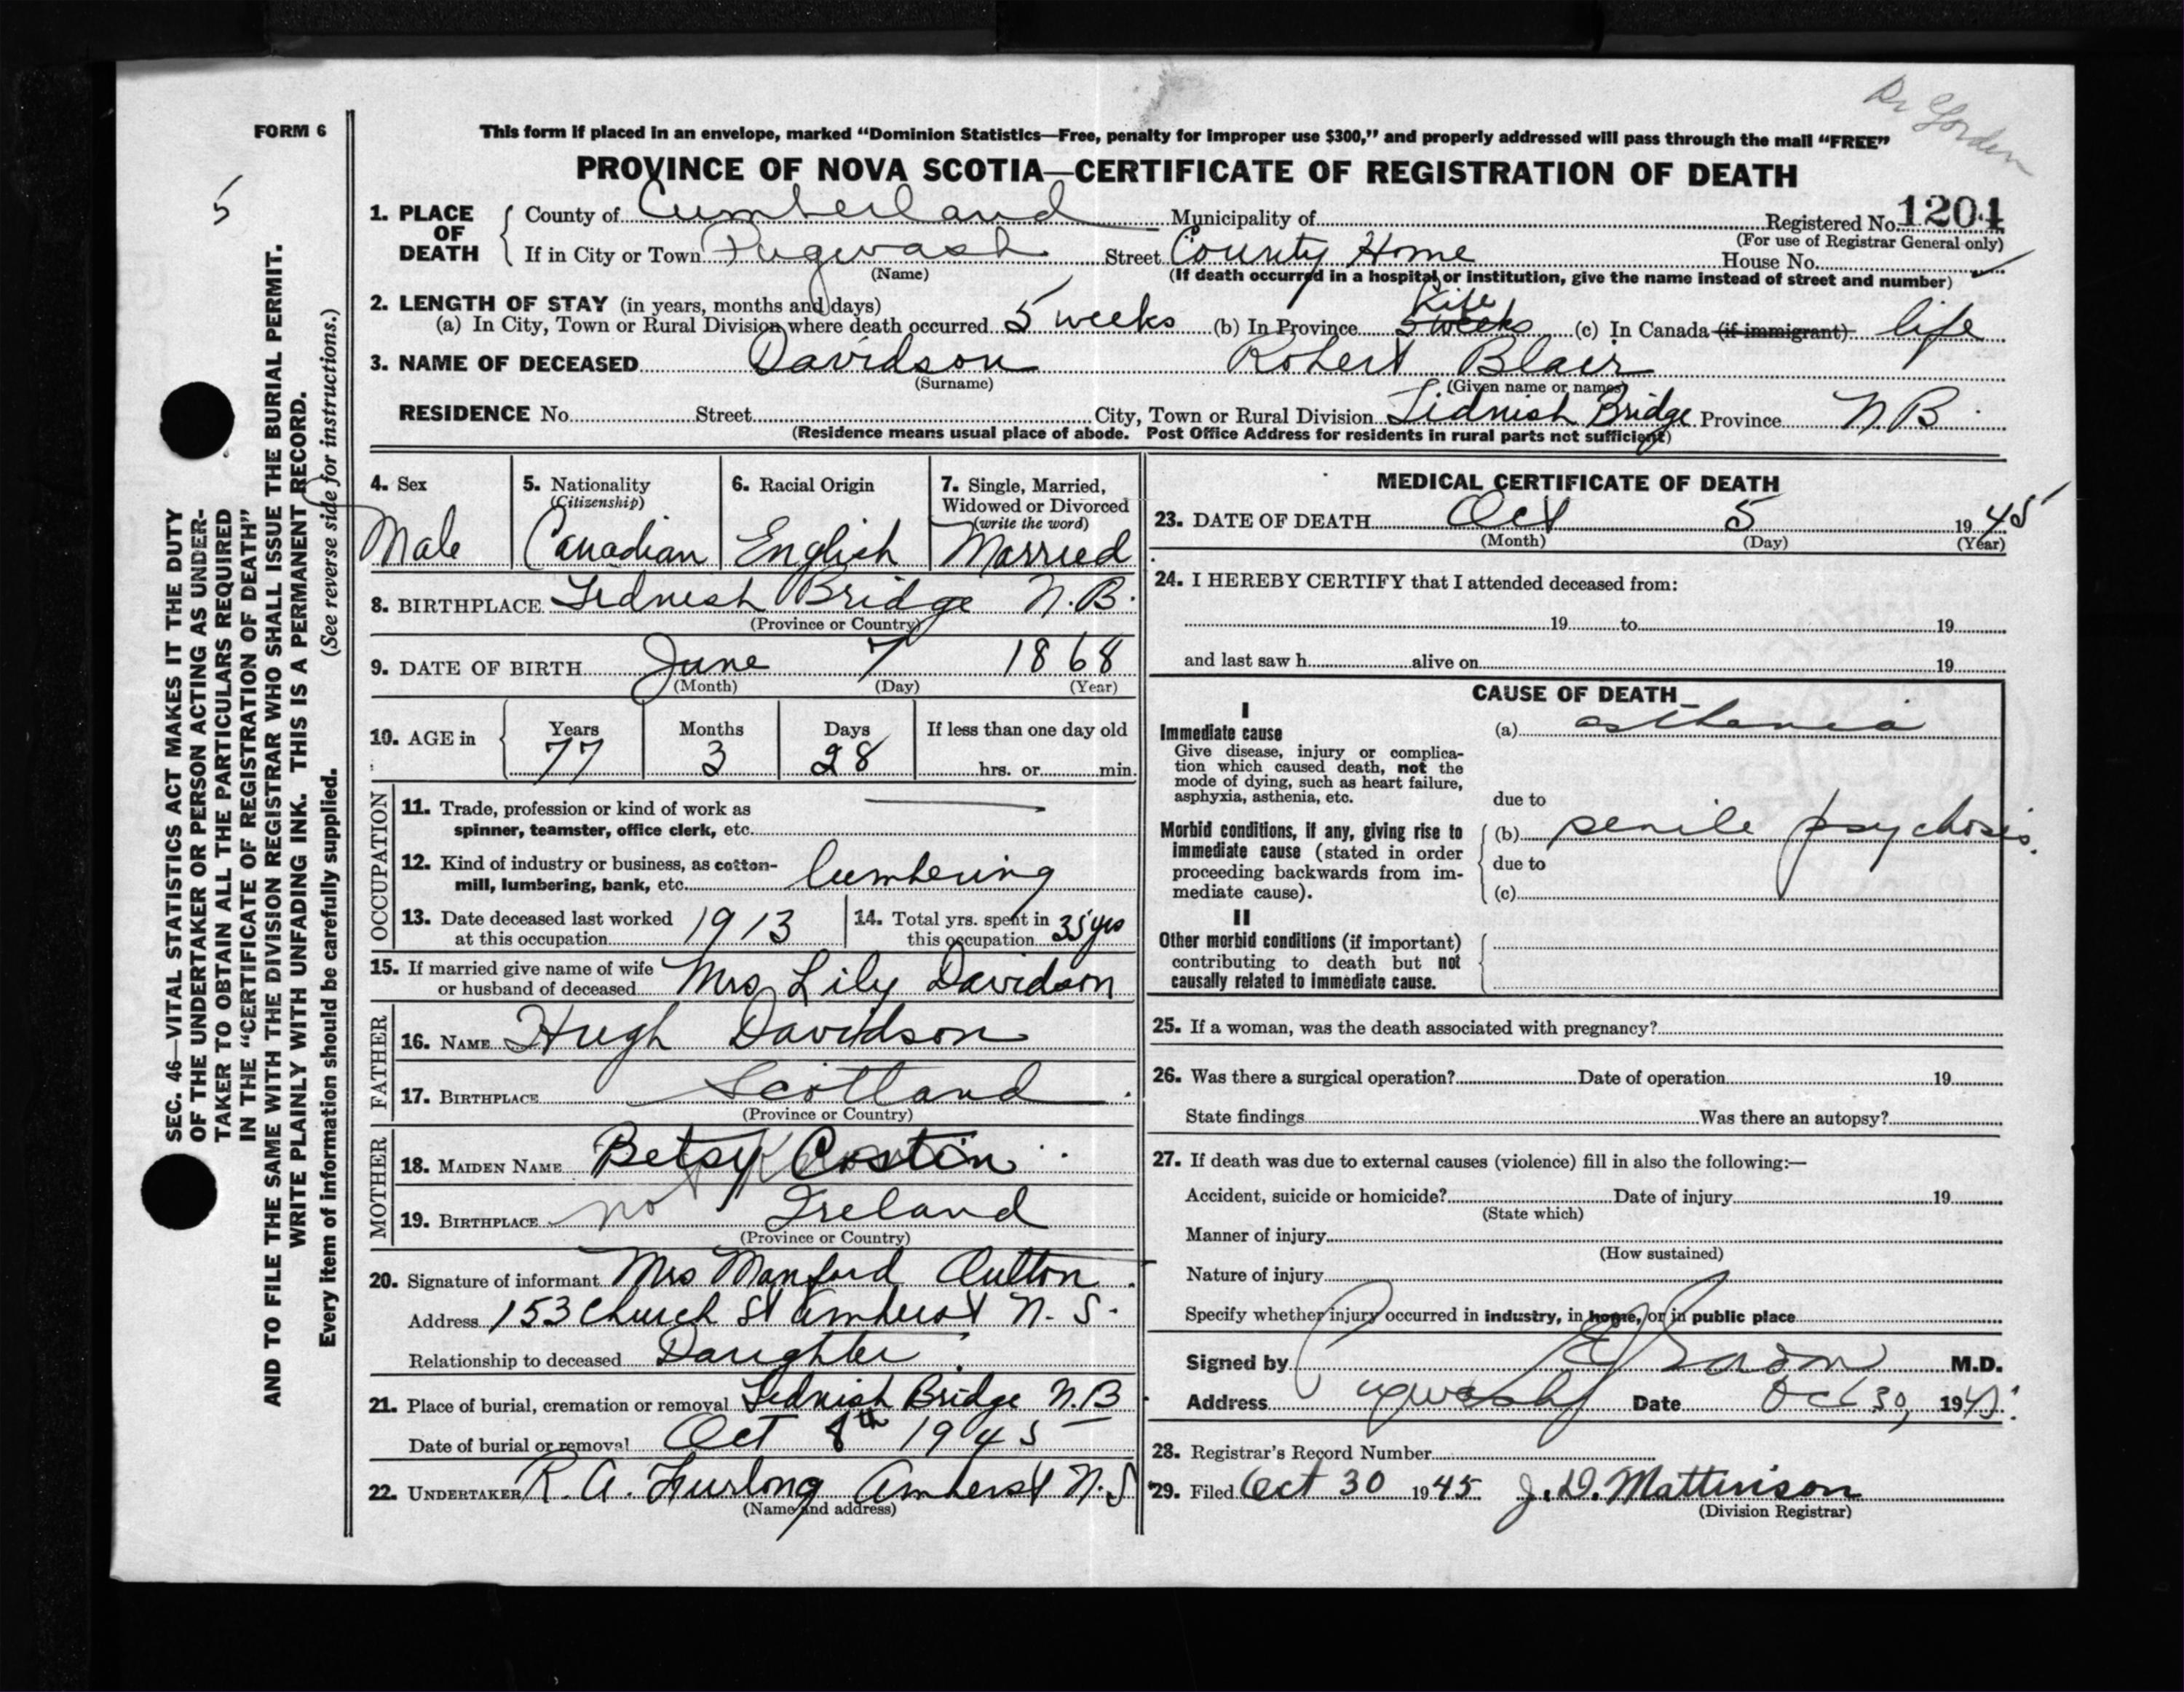 Dr Gordon
FORM 6
This form if placed in an envelope, marked “Dominion Statistics—Free, penalty for improper use $300,” and properly addressed will pass through the mail “FREE”
PROVINCE OF NOVA SCOTIA—CERTIFICATE OF REGISTRATION OF DEATH
5
1. PLACE OF DEATH
County of Cumberland Municipality of Registered No. 1204
(For use of Registrar General only)
If in City or Town Pugwash Street County Home House No.
(Name) (If death occurred in a hospital or institution, give the name instead of street and number)
2. LENGTH OF STAY (in years, months and days)
(a) In City, Town or Rural Division where death occurred 5 weeks (b) In Province life 5 weeks (c) In Canada (if immigrant) life
3. NAME OF DECEASED Davidson Robert Blair
(Surname) (Given name or names)
RESIDENCE No. Street City, Town or Rural Division Tidnish Bridge Province N B.
(Residence means usual place of abode. Post Office Address for residents in rural parts not sufficient)
4. Sex
Male
5. Nationality
(Citizenship)
Canadian
6. Racial Origin
English
7. Single, Married,
Widowed or Divorced
(write the word)
Married
8. BIRTHPLACE Tidnish Bridge N.B.
(Province or Country)
9. DATE OF BIRTH June 7 1868
(Month) (Day) (Year)
10. AGE in Years Months Days If less than one day old
77 3 28 hrs. or min.
OCCUPATION
11. Trade, profession or kind of work as
spinner, teamster, office clerk, etc.
12. Kind of industry or business, as cotton-
mill, lumbering, bank, etc. lumbering
13. Date deceased last worked
at this occupation 1913
14. Total yrs. spent in
this occupation 35 yrs
15. If married give name of wife
or husband of deceased Mrs Lily Davidson
FATHER
16. NAME Hugh Davidson
17. BIRTHPLACE Scotland
(Province or Country)
MOTHER
18. MAIDEN NAME Betsy Costin
19. BIRTHPLACE Ireland
(Province or Country)
20. Signature of informant Mrs Manford Oulton
Address 153 Church St Amherst N. S.
Relationship to deceased Daughter
21. Place of burial, cremation or removal Tidnish Bridge N.B
Date of burial or removal Oct 8th 1945
22. UNDERTAKER R. A. Furlong Amherst N.S
(Name and address)
MEDICAL CERTIFICATE OF DEATH
23. DATE OF DEATH Oct 5 1945
(Month) (Day) (Year)
24. I HEREBY CERTIFY that I attended deceased from:
19 to 19
and last saw h alive on 19
CAUSE OF DEATH
I
Immediate cause
Give disease, injury or complica-
tion which caused death, not the
mode of dying, such as heart failure,
asphyxia, asthenia, etc.
(a) asthenia
due to
Morbid conditions, if any, giving rise to
immediate cause (stated in order
proceeding backwards from im-
mediate cause).
(b) senile psychosis.
due to
(c)
II
Other morbid conditions (if important)
contributing to death but not
causally related to immediate cause.
25. If a woman, was the death associated with pregnancy?
26. Was there a surgical operation? Date of operation 19
State findings Was there an autopsy?
27. If death was due to external causes (violence) fill in also the following:—
Accident, suicide or homicide? Date of injury 19
(State which)
Manner of injury
(How sustained)
Nature of injury
Specify whether injury occurred in industry, in home, or in public place
Signed by M.D.
Address Pugwash Date Oct 30, 1945
28. Registrar's Record Number
29. Filed Oct 30 1945 J. D. Mattinson
(Division Registrar)
SEC. 46—VITAL STATISTICS ACT MAKES IT THE DUTY
OF THE UNDERTAKER OR PERSON ACTING AS UNDER-
TAKER TO OBTAIN ALL THE PARTICULARS REQUIRED
IN THE “CERTIFICATE OF REGISTRATION OF DEATH”
AND TO FILE THE SAME WITH THE DIVISION REGISTRAR WHO SHALL ISSUE THE BURIAL PERMIT.
WRITE PLAINLY WITH UNFADING INK. THIS IS A PERMANENT RECORD.
Every item of information should be carefully supplied. (See reverse side for instructions.)